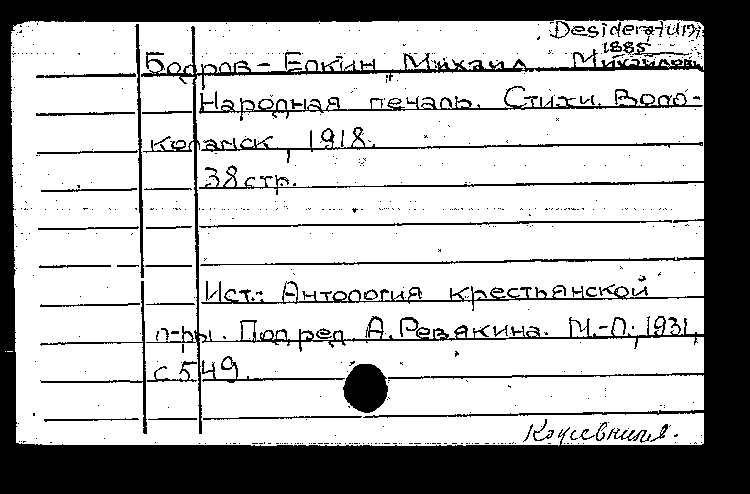 Desideratum
1885
Бодров-Елкин Михаил Михайлович
Народная печаль. Стихи. Воло-
коламск, 1918.
38 стр.
Ист.: Антология крестьянской
л-ры. Под ред. А. Ревякина. М.-Л., 1931,
с 549.